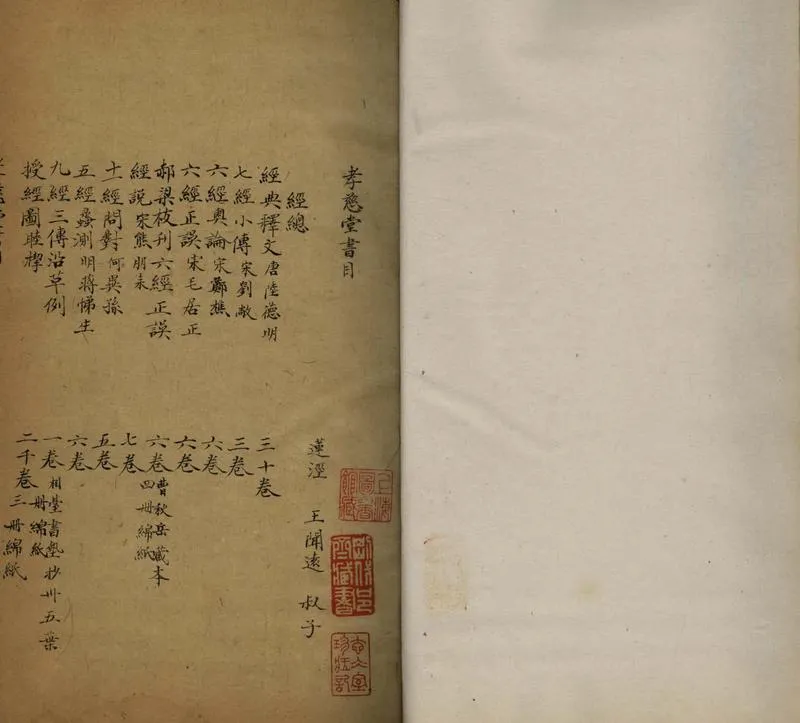 孝慈堂書目
蓮涇 王聞遠 叔子
經總
經典釋文唐陸德明 三十卷
七經小傳宋劉敞 三卷
六經奧論宋鄭樵 六卷
六經正誤宋毛居正 六卷
郝梁校刊六經正誤 六卷曹秋岳藏本四冊綿紙
經說宋熊朋來 七卷
十一經問對何異孫 五卷
五經蠡測明蔣悌生 六卷
九經三傳沿革例 一卷相臺書塾抄卅五葉 冊綿紙
授經圖睦㮮 二十卷三冊綿紙
上海圖書館藏